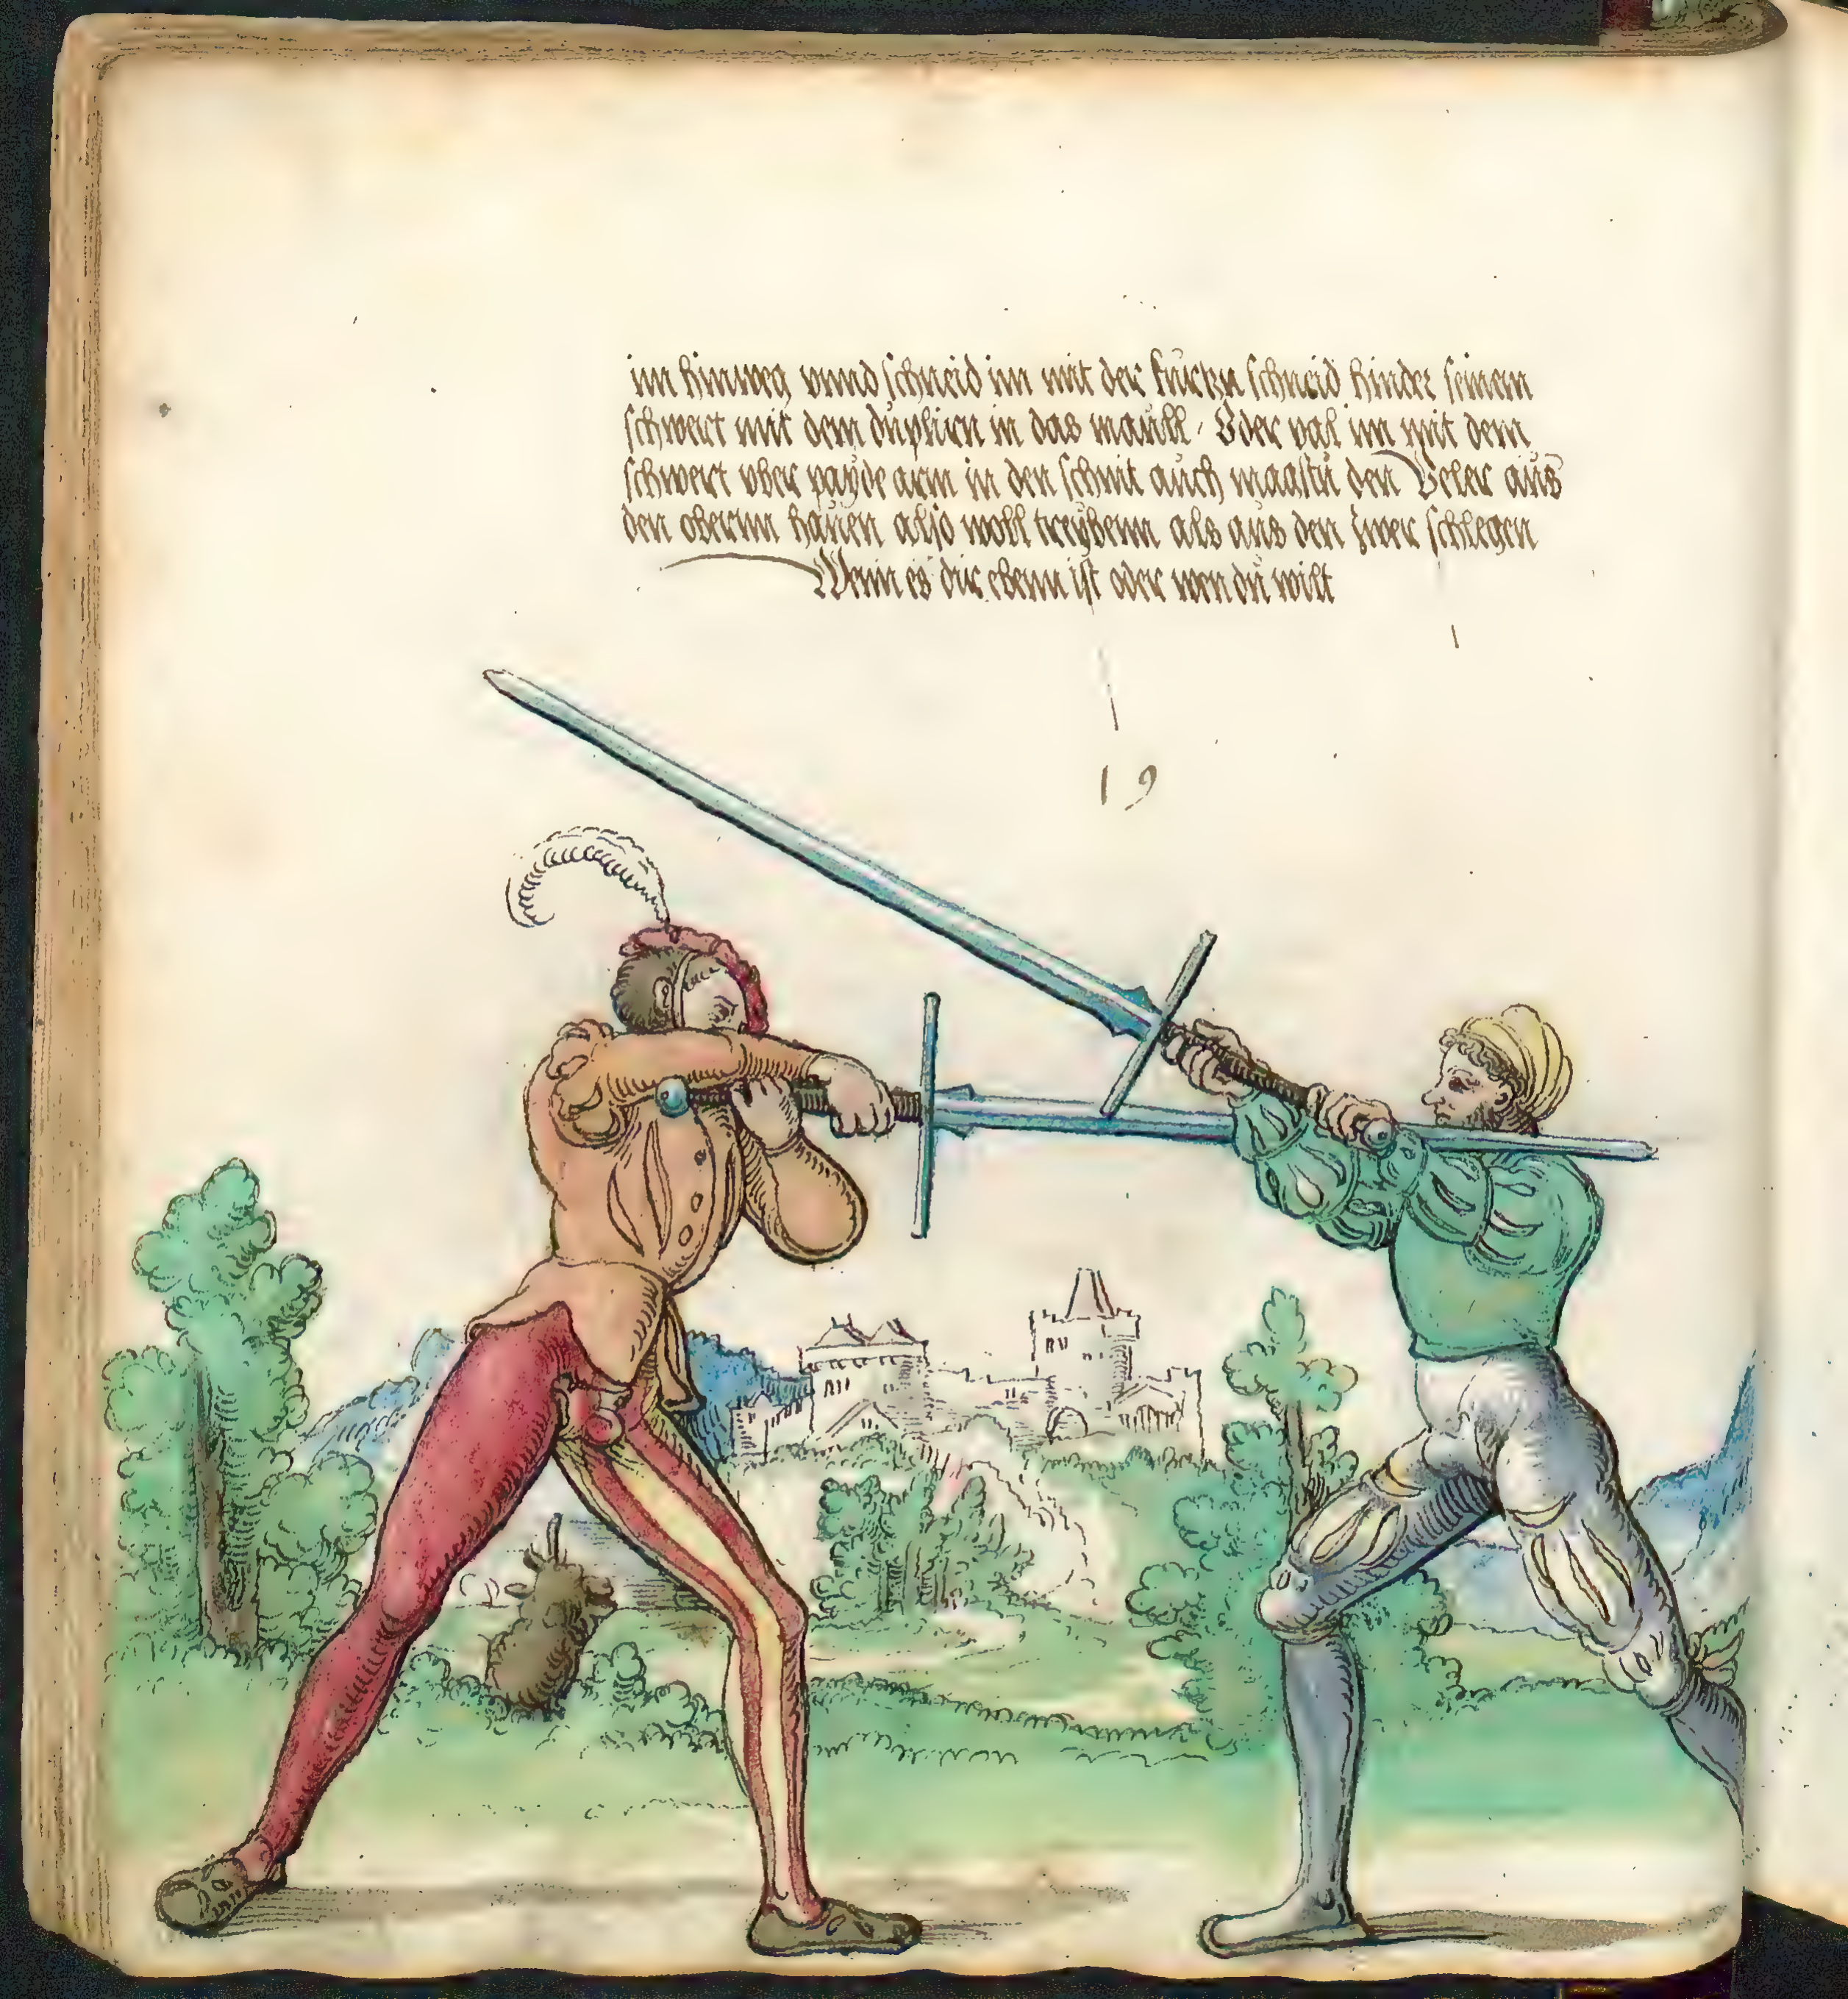 im hinweg vnnd schneid im mit der kurtzn schneid hinder seinem
schwert mit dem duplirn in das maull · Oder val im mit dem
schwert vber payde arm in den schnit auch magstu den Veler aus
den obernn hauen also woll treybenn als aus den zwer schlegen
Wenn es dir ebenn ist oder wen du wilt
19